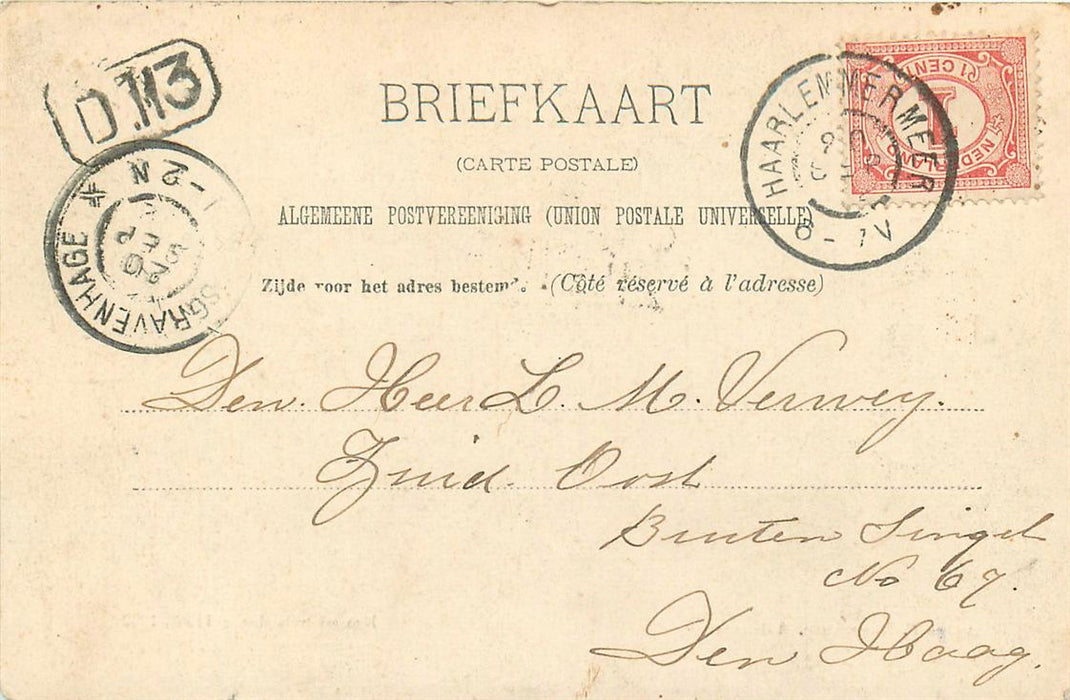 D.113
BRIEFKAART
(CARTE POSTALE)
ALGEMEENE POSTVEREENIGING (UNION POSTALE UNIVERSELLE)
Zijde voor het adres bestemd. (Côté réservé à l'adresse)
HAARLEMMERMEER
6-7V
1 CENT
1
NEDERLAND
'SGRAVENHAGE
1-2N
SEP
Den Heer L. M. Verwey.
Zuid Oost
Buiten Singel
No 67.
Den Haag.